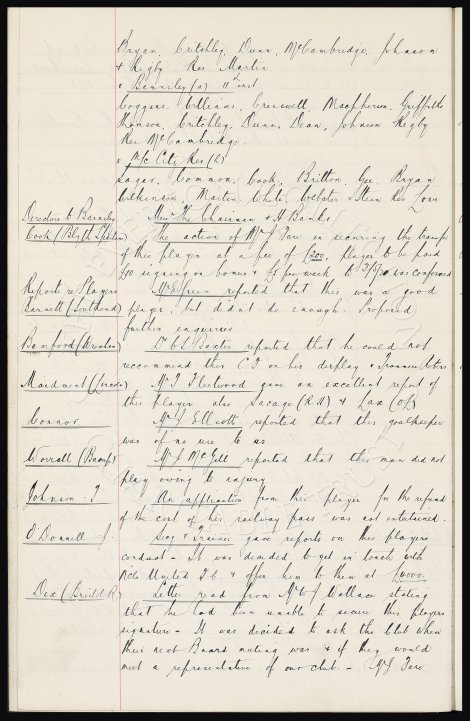 Bryan, Critchley, Dunn, McCambridge, Johnson
& Rigby Res Martin
v Barnsley (a) 11th inst
Coggins, Williams, Cresswell, Macpherson, Griffiths
Thomson, Critchley, Dunn, Dean, Johnson Rigby
Res McCambridge
v M/c City Res (L)
Sagar, Common, Cook, Britton, Gee, Bryan
Wilkinson, Martin, White, Webster & Stein Res Lowe
Directors to Barnsley Messrs The Chairman & A Banks
Cook (Blyth Spartans) The action of Mr J Fare in securing the transfer
of this player at a fee of £200, player to be paid
£10 signing on bonus & £5 per week to was confirmed
Report re Players Mr E Green reported that this was a good
Barnett (Southend) player, but did not do enough. Proposed
further enquiries
Bamford (Wrexham) Dr C S Baxter reported that he could not
recommend this C F on his display &
Maidment (Lincoln) Mr T Fleetwood gave an excellent report of
this player also Savage (R H) & Lax (OL)
Connor Mr J Elliott reported that this goalkeeper
was of no use to us
Worrall (Bacup) Mr J McGill reported that this man did not
play owing to injury
Johnson. J An application from this player for the refund
of the cost of his railway pass was not entertained.
O'Donnell J. Secy & Trainer gave reports on this players
conduct - It was decided to get in touch with
N'cle United F.C. & offer him to them at £4000.
Dix (Bristol R) Letter read from Mr W J Wallace stating
that he had been unable to secure this players
signature - It was decided to ask the Club when
their next Board meeting was & if they would
meet a representative of our club. - Mr J Fare